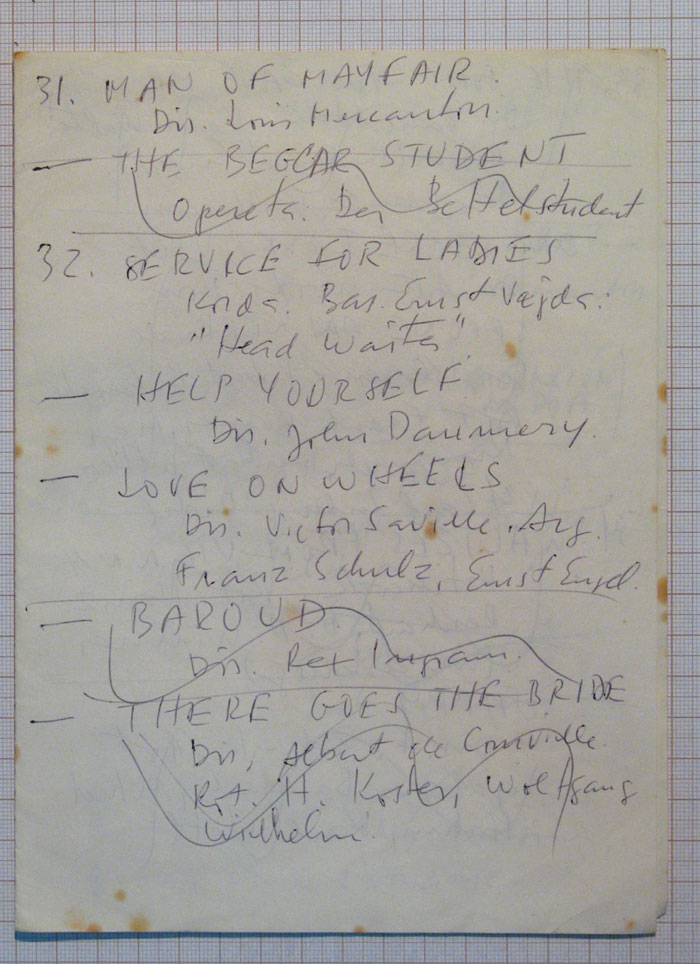 31. MAN OF MAYFAIR.
Dir. Louis Mercanton.
— THE BEGGAR STUDENT
Opereta. Der Bettelstudent
32. SERVICE FOR LADIES
Korda. Bas. Ernst Vajda:
"Head Waiter".
— HELP YOURSELF.
Dir. John Daumery.
— LOVE ON WHEELS
Dir. Victor Saville. Arg.
Franz Schulz, Ernst Engel.
— BAROUD.
Dir. Rex Ingram.
— THERE GOES THE BRIDE
Dir. Albert de Courville.
H. Koster, Wolfgang
Wilhelm.